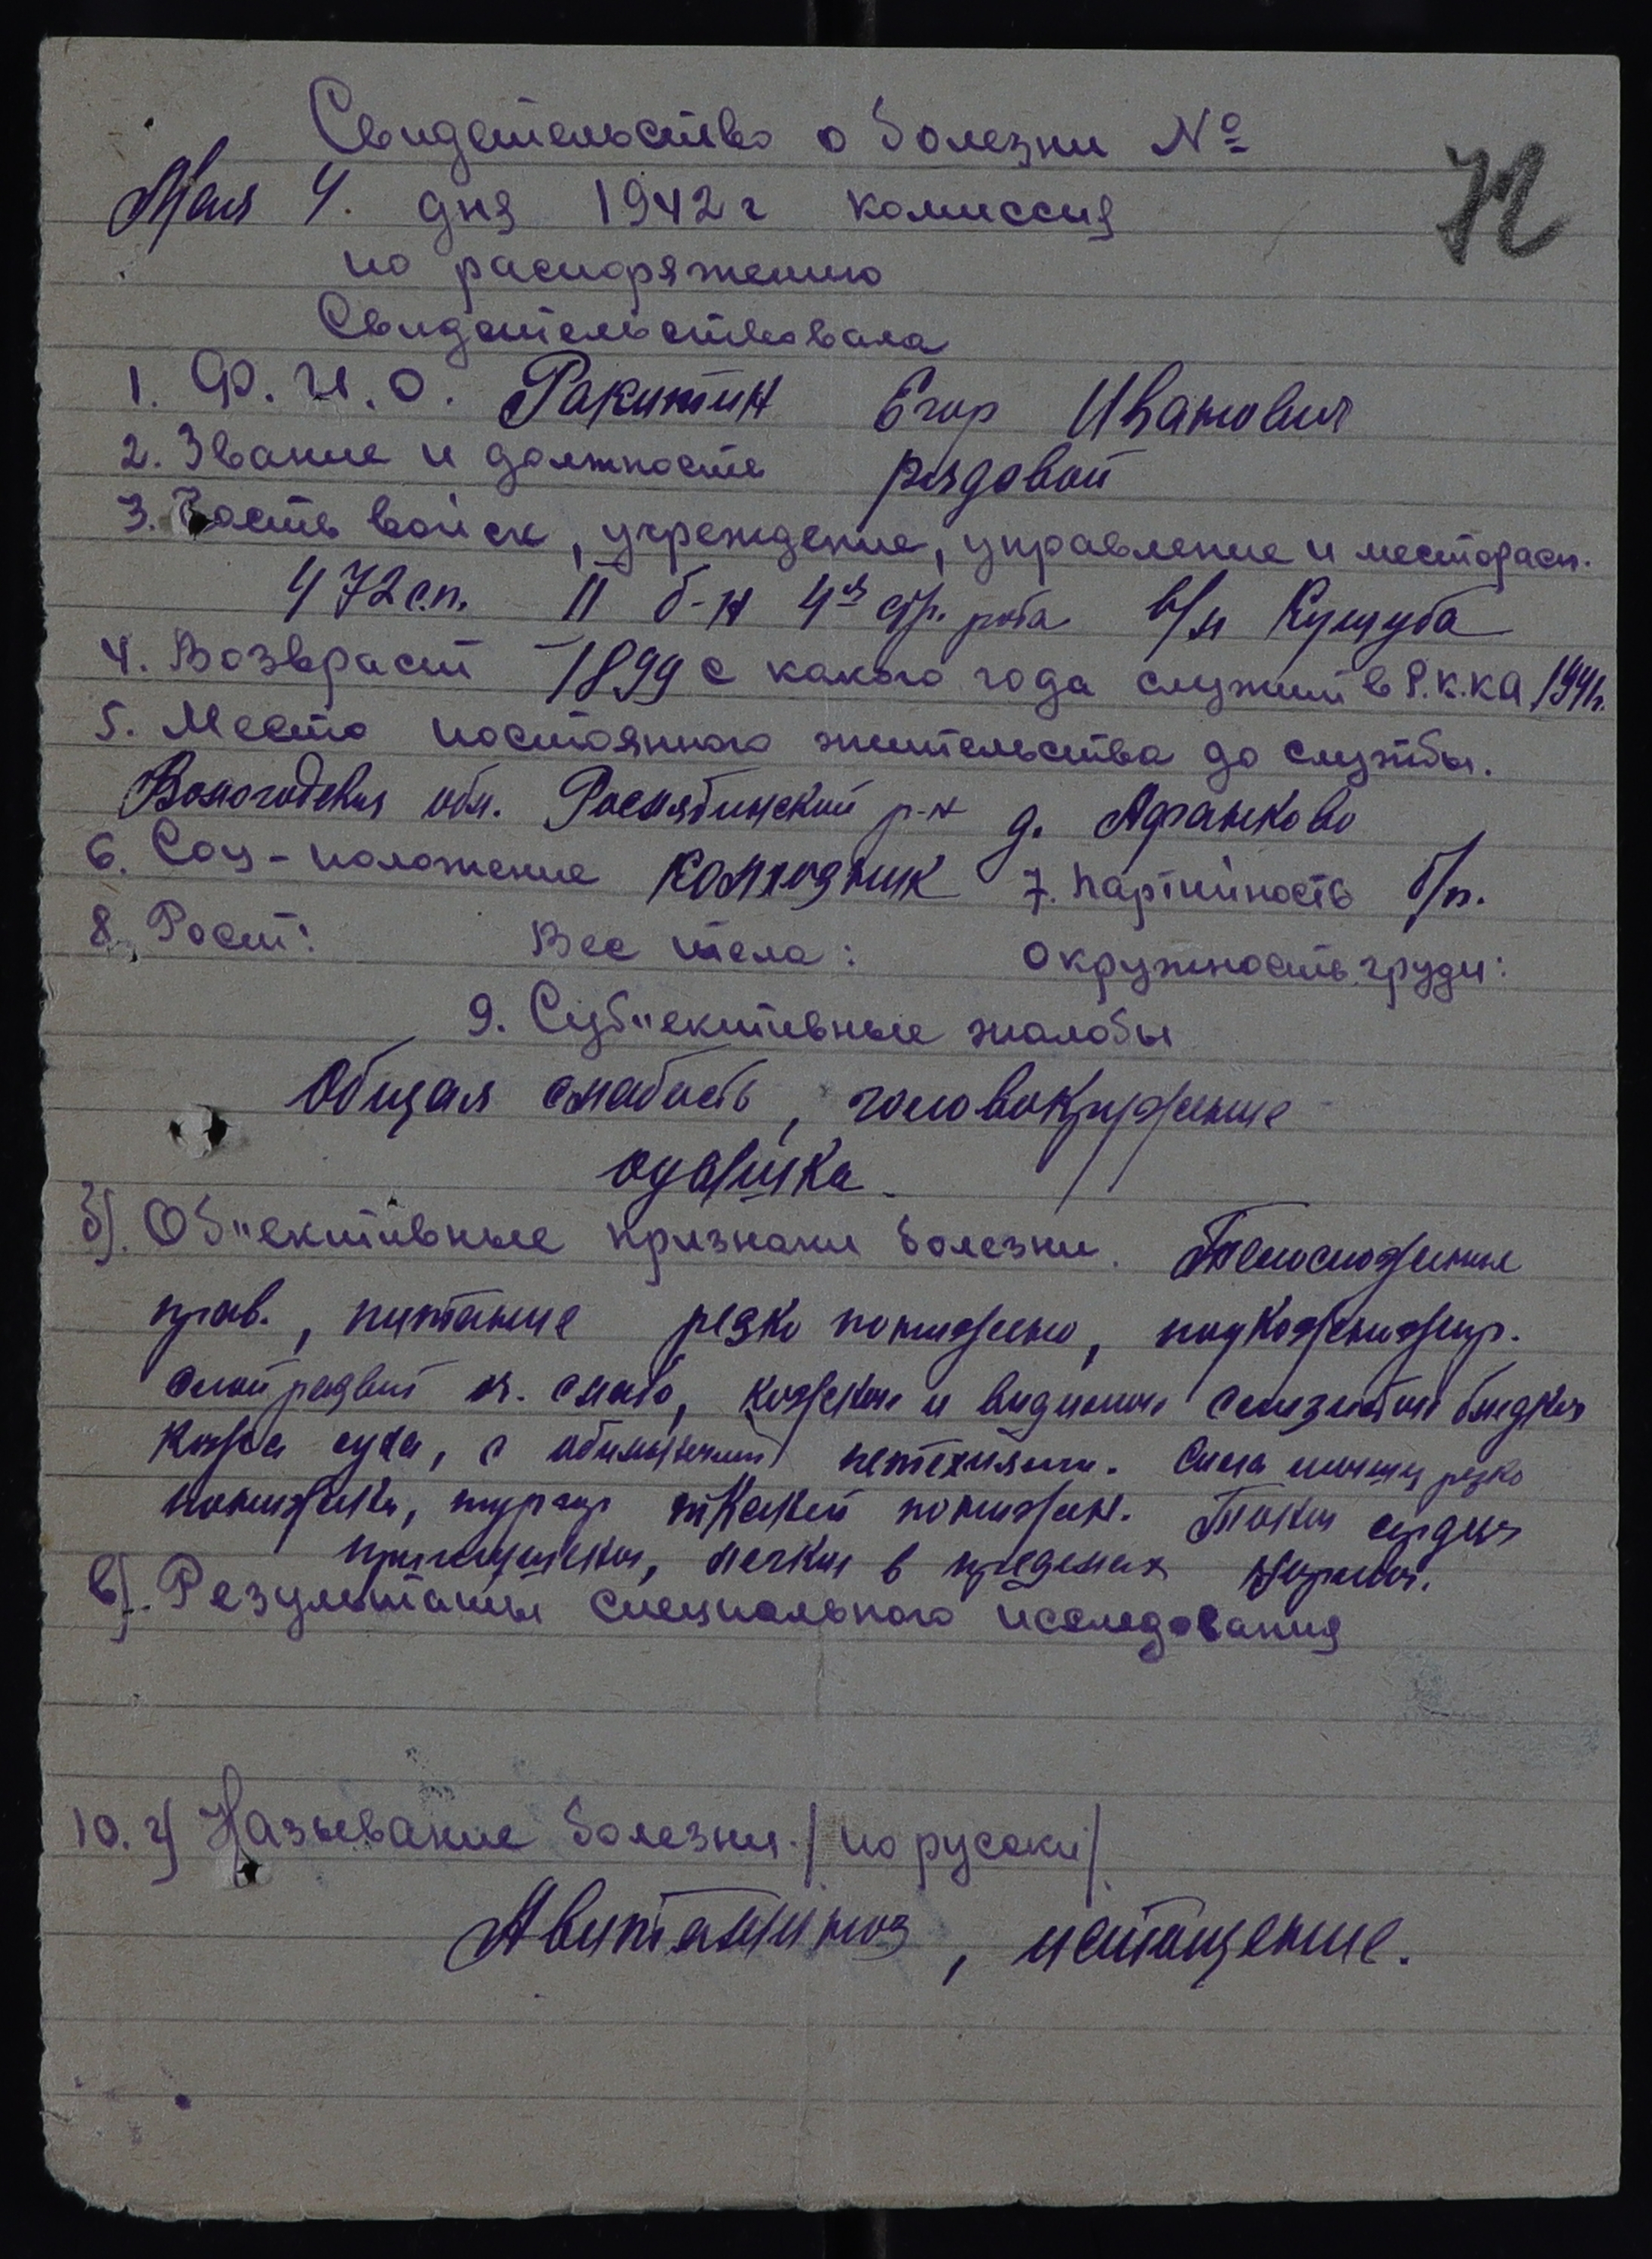 Свидетельство о болезни №
72
Мая 4. дня 1942 г комиссия
по распоряжению
Свидетельствовала
1. Ф. И. О. Ракитин Егор Иванович
2. Звание и должность рядовой
3. Часть войск, учреждение, управление и месторасп.
472 с.п. II б-н 4я стр. рота в/л Кущуба
4. Возвраст 1899 с какого года служит в Р.К.КА 1941г.
5. Место постоянного жительства до службы.
Вологодская обл. Рослятинский р-н д. Афанково
6. Соц-положение колхозник 7. партийность б/п.
8. Рост: Вес тела: окружность груди:
9. Суб"ективные жалобы
Общая слабость, головокружение
одышка.
б). Об"ективные признаки болезни. Телосложение
прав., питание резко понижено, подкожножир.
слой развит оч. слабо, кожные и видимые слизистые бледные
кожа суха, с обильными петехиями. Сила мышц резко
понижена, тургор тканей понижен. Тоны сердца
приглушены, легкие в пределах нормы.
в). Результаты специального иследования
10. г) Называние болезни. /по русски/
Авитаминоз, истощение.